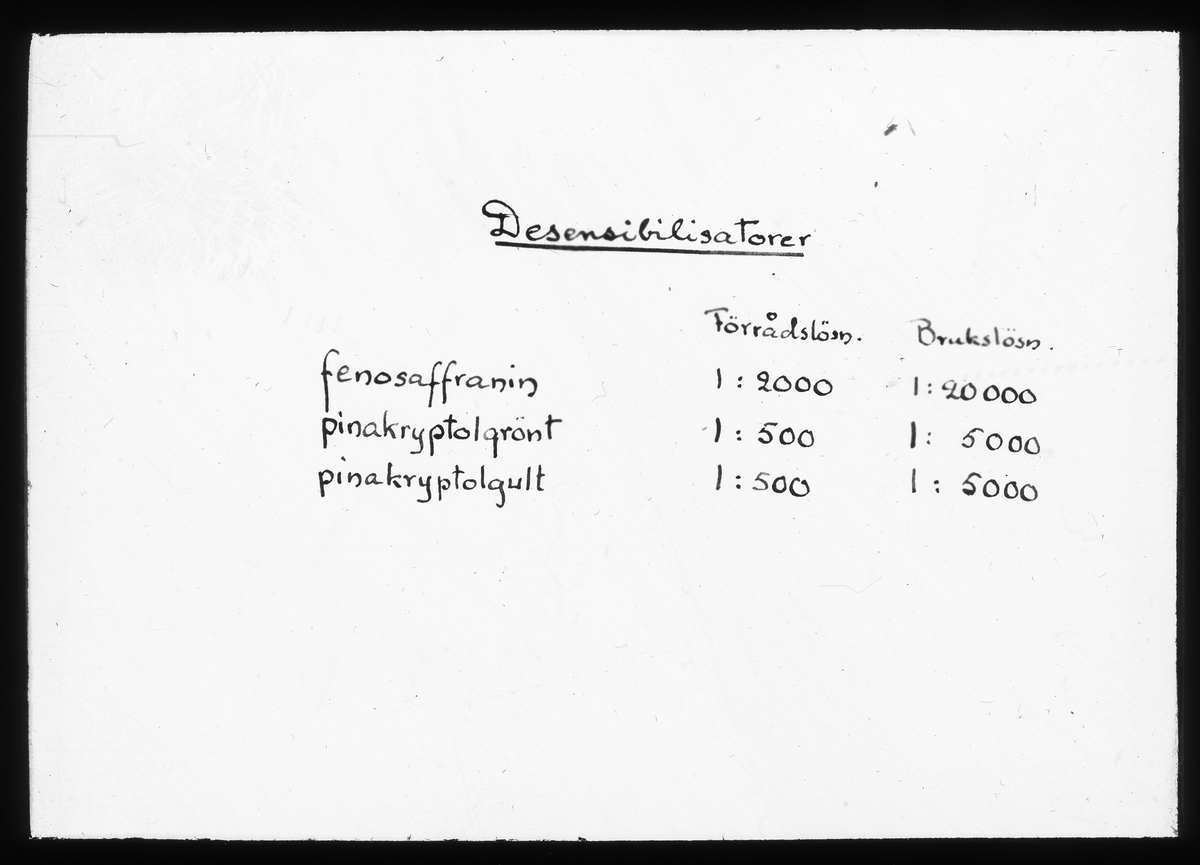 Desensibilisatorer
Förrådslösn. Brukslösn.
fenosaffranin 1:2000 1:20000
pinakryptolgrönt 1: 500 1: 5000
pinakryptolgult 1:500 1: 5000